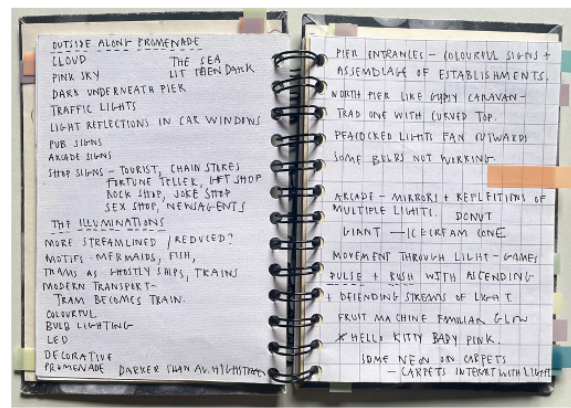 OUTSIDE ALONG PROMENADE
CLOUD THE SEA
PINK SKY LIT THEN DARK
DARK UNDERNEATH PIER
TRAFFIC LIGHTS
LIGHT REFLECTIONS IN CAR WINDOWS
PUB SIGNS
ARCADE SIGNS
SHOP SIGNS - TOURIST, CHAIN STORES
FORTUNE TELLER, GIFT SHOP
ROCK SHOP, JOKE SHOP
SEX SHOP, NEWSAGENTS
THE ILLUMINATIONS
MORE STREAMLINED / REDUCED?
MOTIFS - MERMAIDS, FISH,
TRAMS AS GHOSTLY SHIPS, TRAINS
MODERN TRANSPORT -
TRAM BECOMES TRAIN.
COLOURFUL
BULB LIGHTING
LED
DECORATIVE
PROMENADE DARKER THAN AV. HIGHSTREET
PIER ENTRANCES - COLOURFUL SIGNS +
ASSEMBLAGE OF ESTABLISHMENTS.
NORTH PIER LIKE GYPSY CARAVAN -
TRAD ONE WITH CURVED TOP.
PEACOCKED LIGHTS FAN OUTWARDS
SOME BULBS NOT WORKING.
ARCADE - MIRRORS + REFLETIONS OF
MULTIPLE LIGHTS. DONUT
GIANT - ICECREAM CONE
MOVEMENT THROUGH LIGHT - GAMES
PULSE + RUSH WITH ASCENDING
+ DEFENDING STREAMS OF LIGHT.
FRUIT MACHINE FAMILIAR GLOW
X HELLO KITTY BABY PINK.
SOME NEON ON CARPETS
- CARPETS INTERACT WITH LIGHT